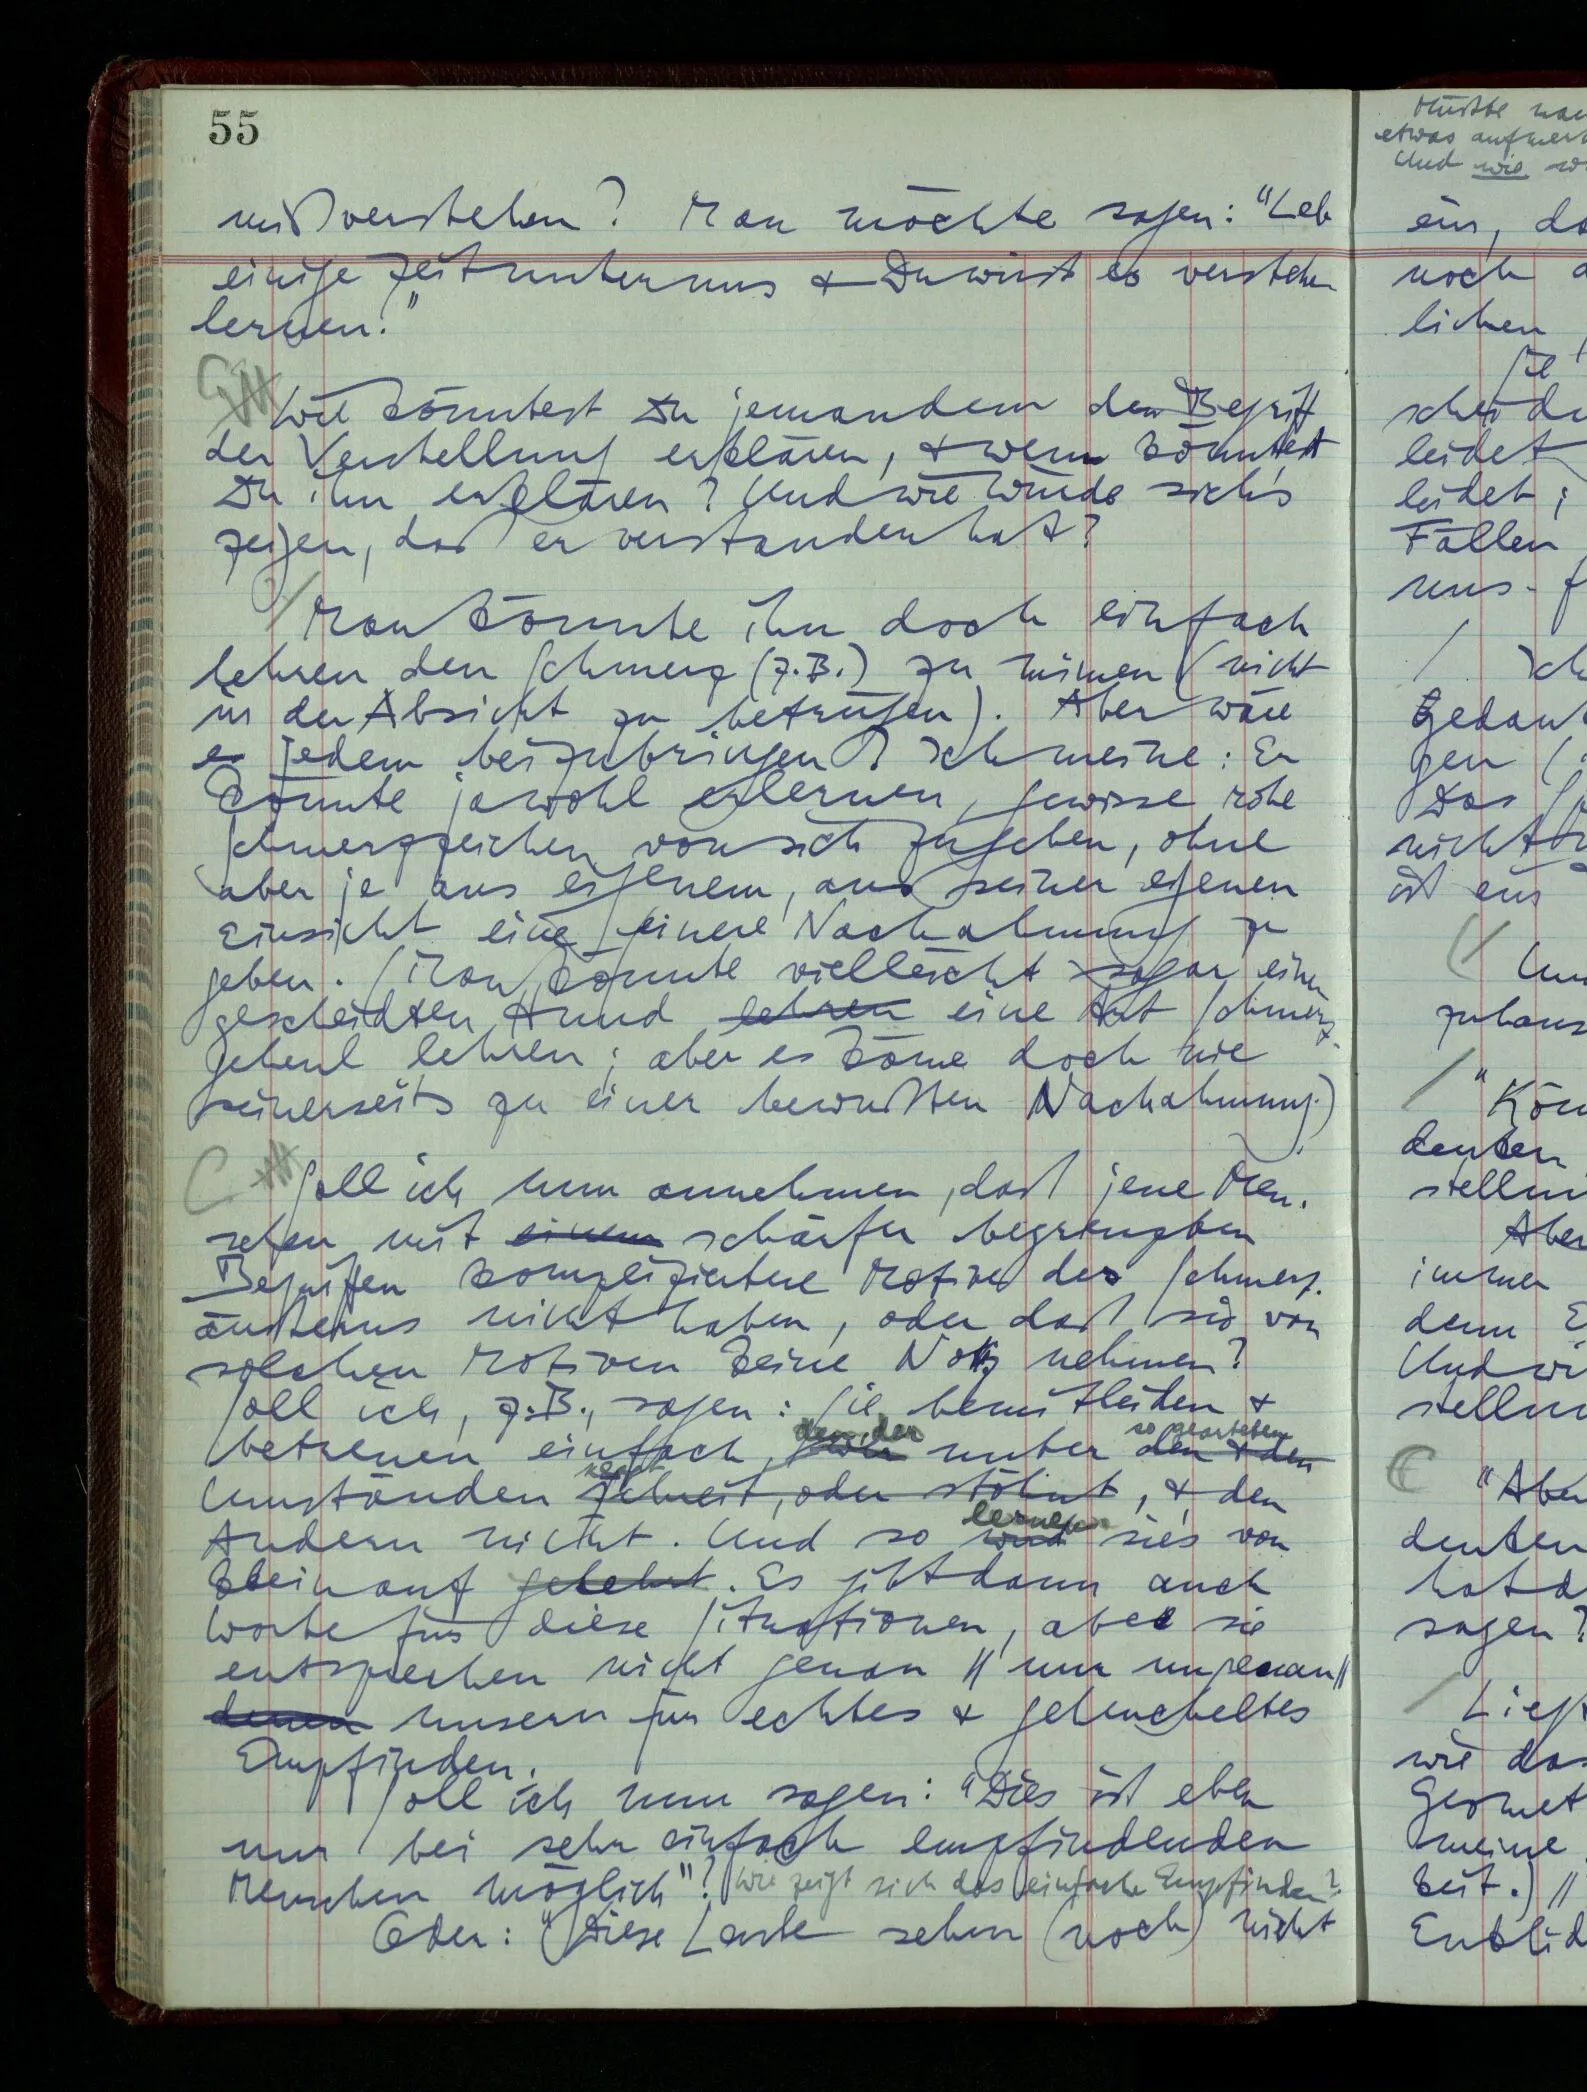 55
mißverstehen? Man möchte sagen: "Leb
einige Zeit unter uns & Du wirst es verstehen
lernen."
Wie könntest Du jemandem den Begriff
der Verstellung erklären, & wem könntest
Du ihn erklären? Und wie würde sich's
zeigen, daß er verstanden hat?
Man könnte ihn doch einfach
lehren den Schmerz (z.B.) zu mimen (nicht
in der Absicht zu betrügen). Aber wäre
es jedem beizubringen? Ich meine: Er
könnte ja wohl erlernen, gewisse rohe
Schmerzzeichen von sich zu geben, ohne
aber je aus eigenem, aus seiner eigenen
Einsicht eine feinere Nachahmung zu
geben. (Man könnte vielleicht sogar einen
gescheidten Hund lehren eine Art Schmerz-
geheul lehren; aber es käme doch nie
seinerseits zu einer bewußten Nachahmung.)
Soll ich nun annehmen, daß jene Men-
schen mit einem schärfer begrenzten
Begriffen kompliziertere Motive des Schmerz-
äußerns nicht haben, oder daß sie von
solchen Motiven keine Notiz nehmen?
Soll ich, z.B., sagen: Sie bemitleiden &
den, der so gearteten
betreuen einfach unter den & den
Umständen schreit, oder stöhnt, & den
lernen
Andern nicht. Und so wird sie's von
klein auf gelehrt. Es gibt dann auch
Worte für diese Situationen, aber sie
entsprechen nicht genau // nur ungenau //
denen unsern für echtes & geheucheltes
Empfinden.
Soll ich nun sagen: "Dies ist eben
nur bei sehr einfach empfindenden
Menschen möglich"? Wie zeigt sich das einfache Empfinden?
Oder: "Diese Leute sehen (noch) nicht
etwas
Und wie
ein,
noch
lichen
leidet
leidet;
Fällen
uns.
nicht
ist ein
"Kön
deuten
Aber
immer
denn
"Aber
deuten
sagen?
wie das
meine